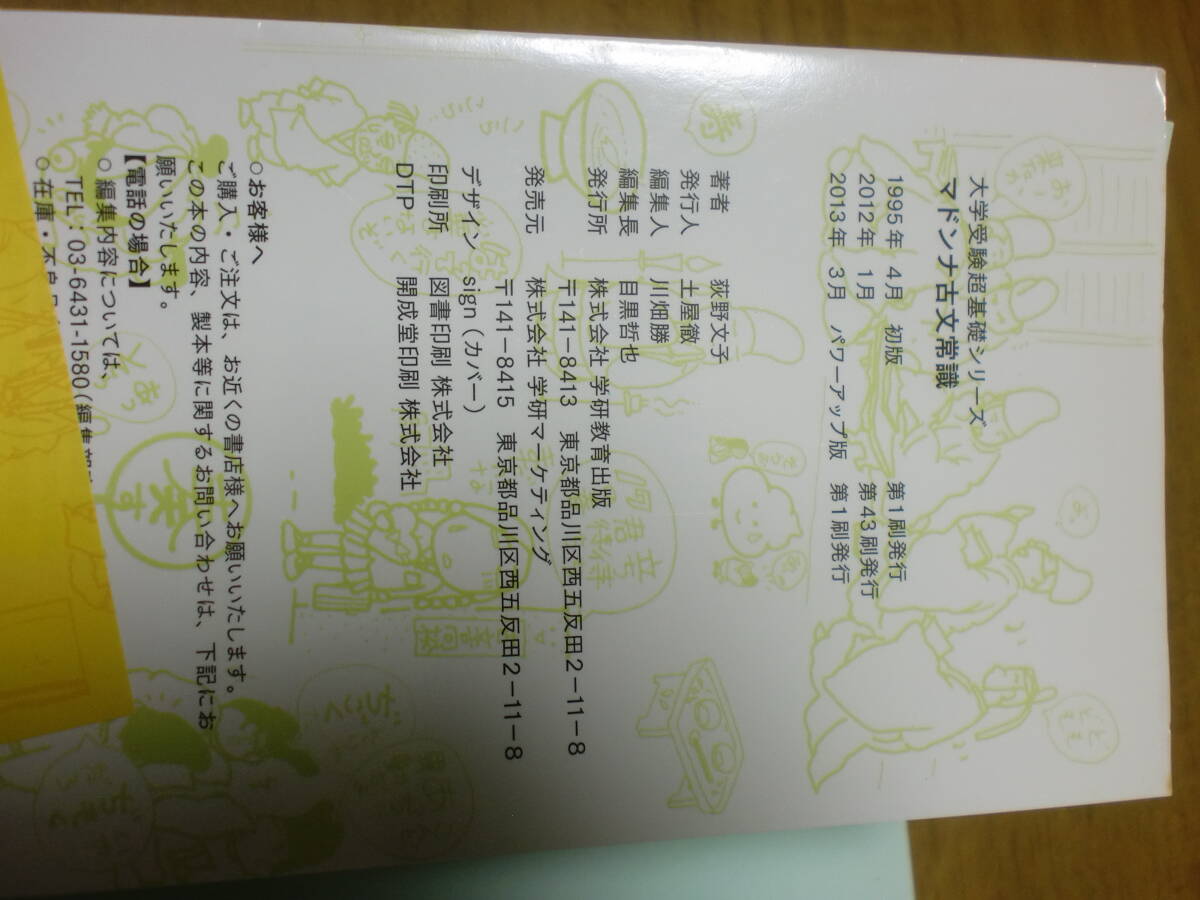 大学受験超基礎シリーズ
マドンナ古文常識
1995年 4月 初版 第1刷発行
2012年 1月 第43刷発行
2013年 3月 パワーアップ版 第1刷発行
著者 荻野文子
発行人 土屋徹
編集人 川畑勝
編集長 目黒哲也
発行所 株式会社 学研教育出版
〒141-8413 東京都品川区西五反田2-11-8
発売元 株式会社 学研マーケティング
〒141-8415 東京都品川区西五反田2-11-8
デザイン sign(カバー)
印刷所 図書印刷 株式会社
DTP 開成堂印刷 株式会社
○お客様へ
ご購入・ご注文は、お近くの書店様へお願いいたします。
この本の内容、製本等に関するお問い合わせは、下記にお
願いいたします。
【電話の場合】
○編集内容については、
TEL:03-6431-1580(編集部
○在庫・不良
寿